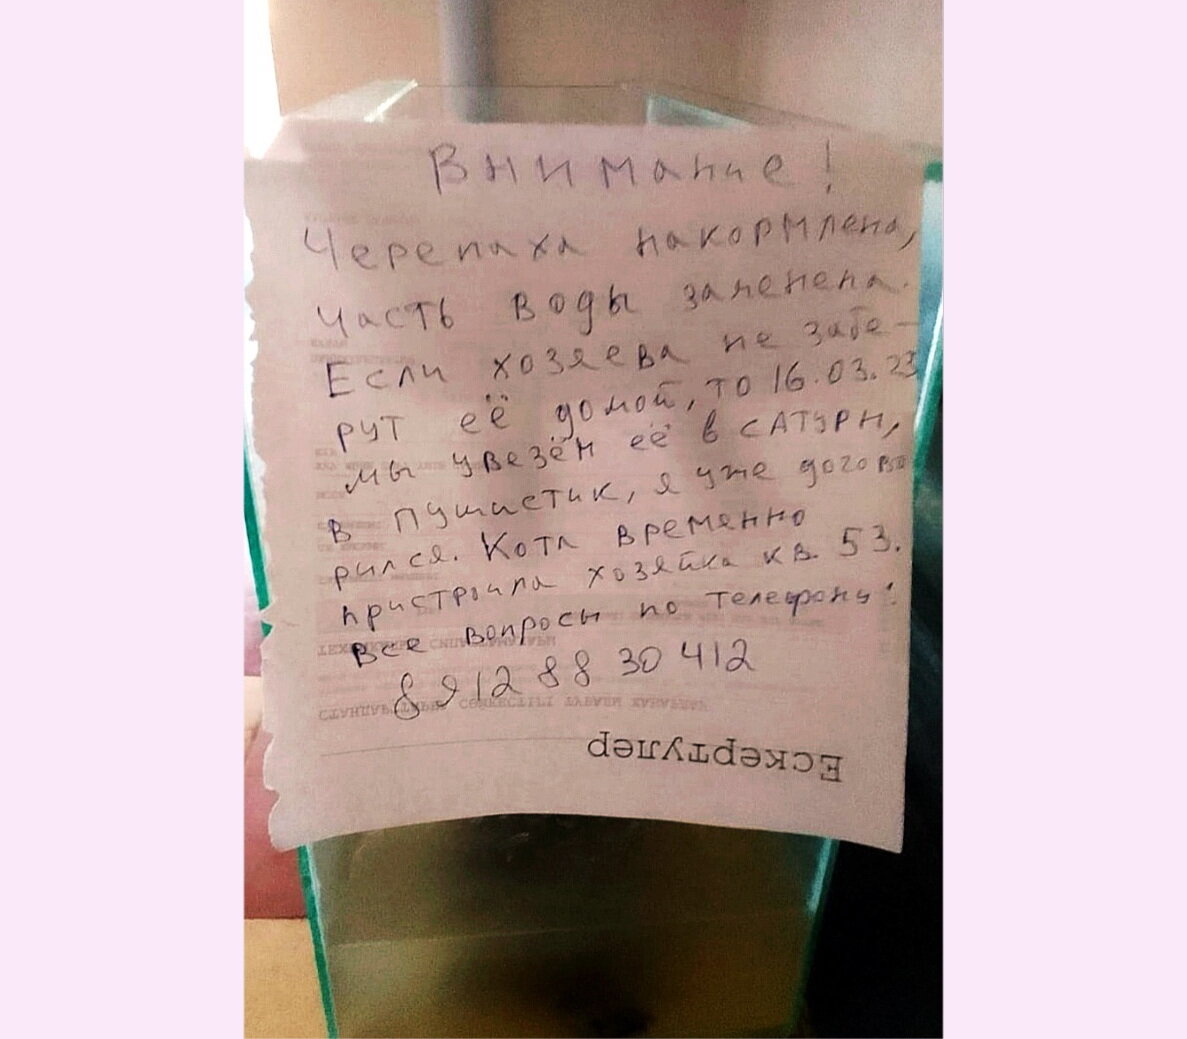 Внимание!
Черепаха накормлена,
часть воды заменена.
Если хозяева не забе-
рут её домой, то 16.03.23
мы увезём её в САТУРН,
в Пушистик, я уже догово
рился. Кота временно
пристроила хозяйка кв. 53.
Все вопросы по телефону:
8 912 88 30 412
Ескертулер